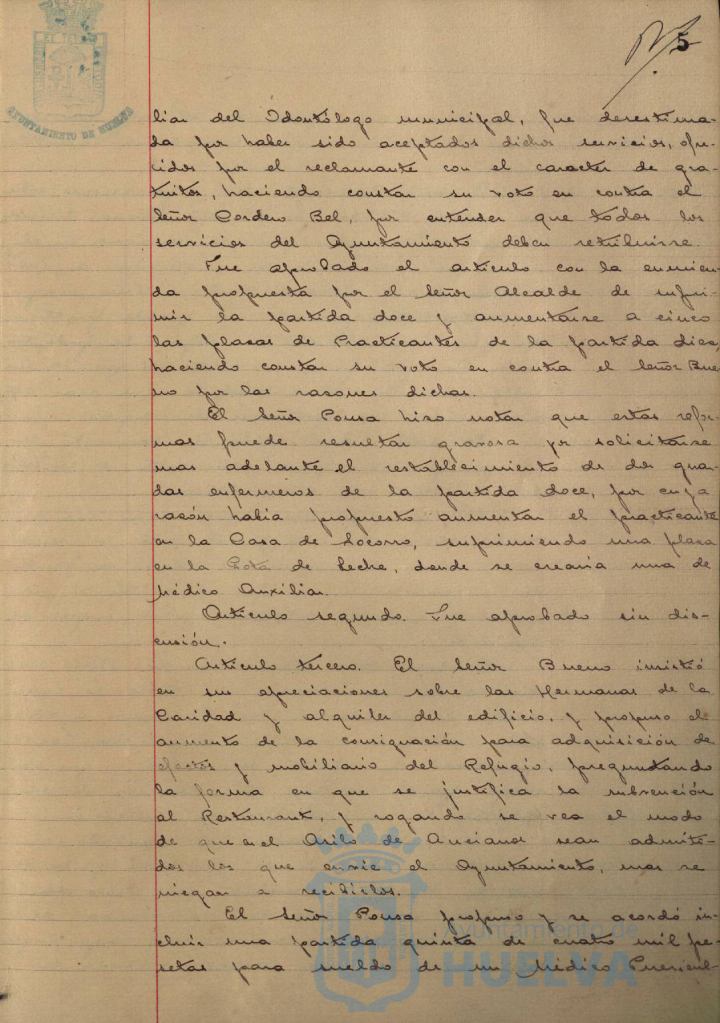 5
AYUNTAMIENTO DE HUELVA
liar del Odontólogo municipal, fue desestima-
da por haber sido aceptados dichos servicios, ofre-
cidos por el reclamante con el caracter de gra-
tuitos, haciendo constar su voto en contra el
Señor Cordero Bel, por entender que todos los
servicios del Ayuntamiento deben retribuirse.
Fue aprobado el artículo con la enmien-
da propuesta por el Señor Alcalde de supri-
mir la partida doce y aumentarse a cinco
las plazas de Practicantes de la partida diez,
haciendo constar su voto en contra el Señor Bue-
no por las razones dichas.
El Señor Ponsa hizo notar que estas refor-
mas puede resultar gravosa por solicitarse
mas adelante el restablecimiento de dos guar-
das enfermeros de la partida doce, por cuya
razón había propuesto aumentar el practicante
en la Casa de Socorro, suprimiendo una plaza
en la Gota de Leche, donde se crearia una de
Médico Auxiliar.
Artículo segundo. Fue aprobado sin dis-
cusión.
Artículo tercero. El Señor Bueno insistió
en sus apreciaciones sobre las Hermanas de la
Caridad y alquiler del edificio, y propuso el
aumento de la consignación para adquisición de
efectos y mobiliario del Refugio, preguntando
la forma en que se justifica la subvención
al Restaurant, y rogando se vea el modo
de que en el Asilo de Ancianos sean admiti-
dos los que envie el Ayuntamiento, mas se
niegan a recibirlos.
El Señor Ponsa propuso y se acordó in-
cluir una partida quinta de cuatro mil pe-
setas para sueldo de un Médico Puericul-
Ayuntamiento de
HUELVA